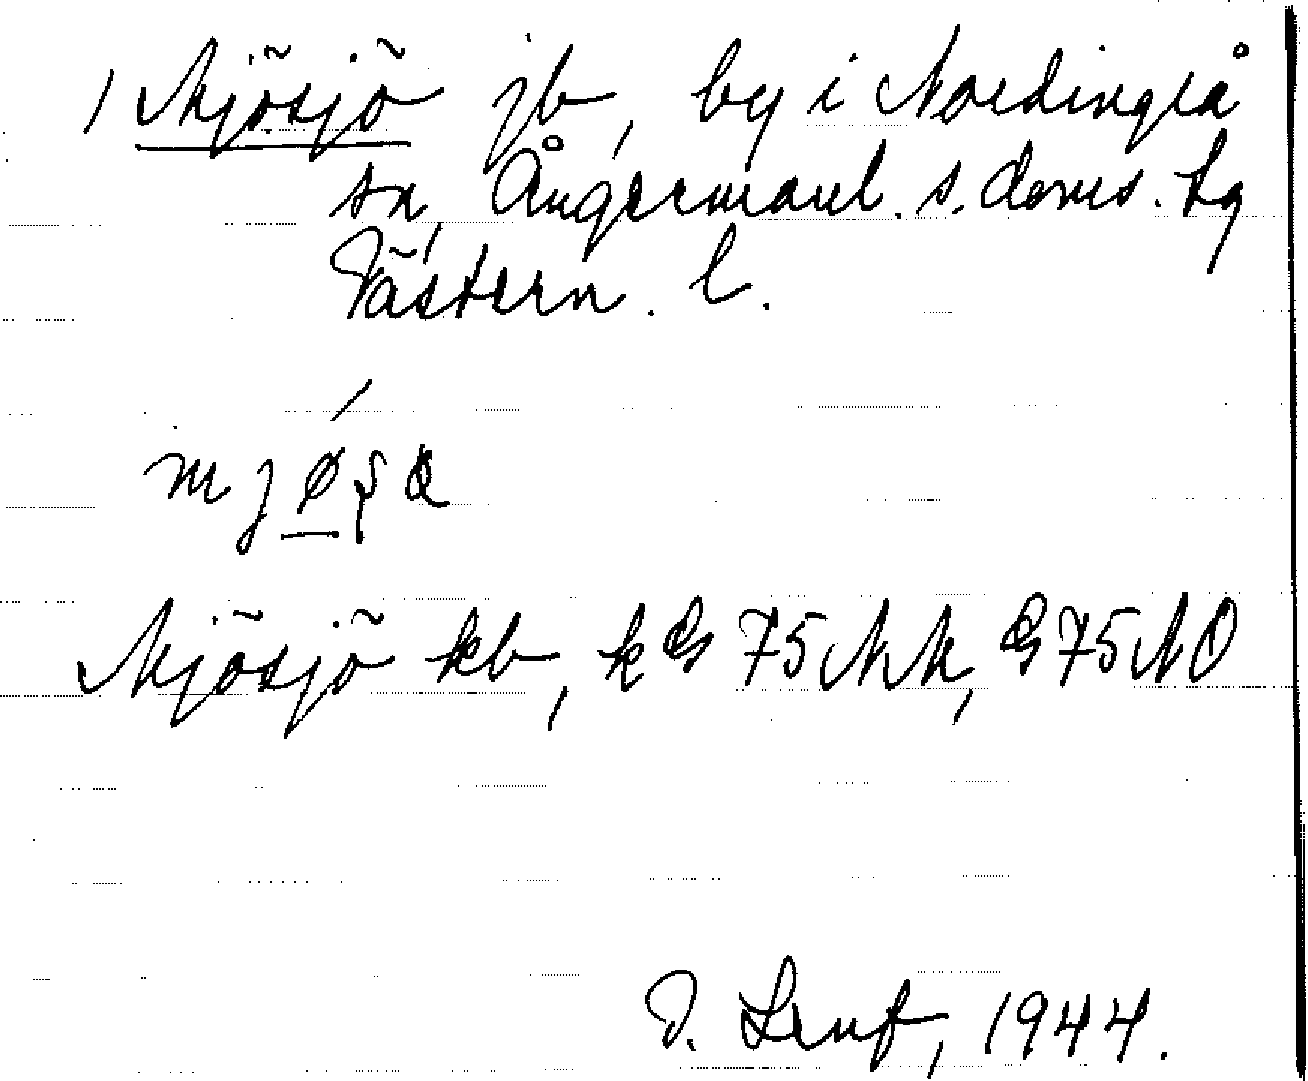 1 Mjösjö jb, by i Nordingrå
sn, Ångermanl. s. doms. tg
Västern. l.
Mjösjö kb, k GS 75 NK, GS 75 NO
D. Lenf, 1944.